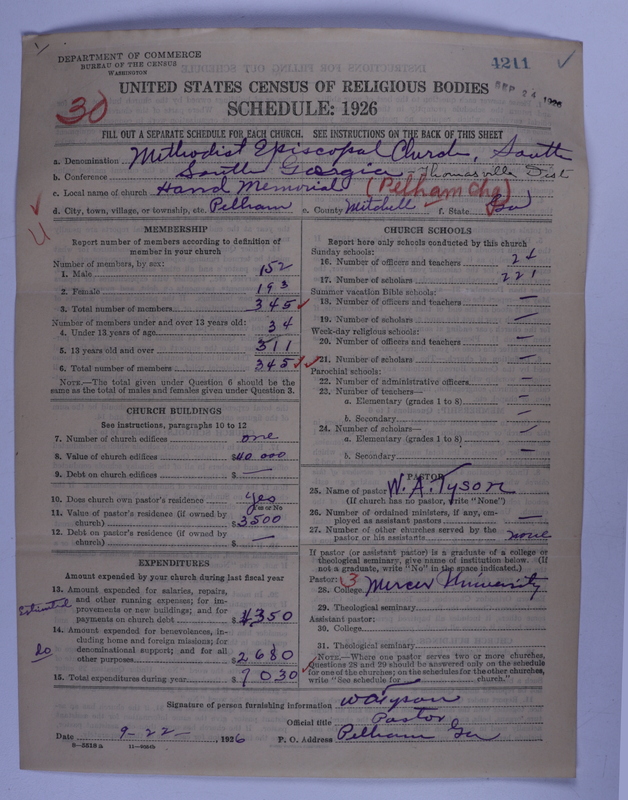 DEPARTMENT OF COMMERCE
BUREAU OF THE CENSUS
WASHINGTON
4211
SEP 24 1926
UNITED STATES CENSUS OF RELIGIOUS BODIES
SCHEDULE: 1926
30
FILL OUT A SEPARATE SCHEDULE FOR EACH CHURCH. SEE INSTRUCTIONS ON THE BACK OF THIS SHEET
a. Denomination Methodist Episcopal Church, South
b. Conference South Georgia - Thomasville Dist
c. Local name of church Hand Memorial (Pelham Chg)
d. City, town, village, or township, etc. Pelham e. County Mitchell f. State Ga
U
MEMBERSHIP
Report number of members according to definition of
member in your church
Number of members, by sex:
1. Male 152
2. Female 193
3. Total number of members 345
Number of members under and over 13 years old:
4. Under 13 years of age 34
5. 13 years old and over 311
6. Total number of members 345
NOTE.—The total given under Question 6 should be the
same as the total of males and females given under Question 3.
CHURCH BUILDINGS
See instructions, paragraphs 10 to 12
7. Number of church edifices one
8. Value of church edifices $40 000
9. Debt on church edifices $ —
10. Does church own pastor's residence yes
Yes or No
11. Value of pastor's residence (if owned by
church) $3500
12. Debt on pastor's residence (if owned by
church) $ —
EXPENDITURES
Amount expended by your church during last fiscal year
13. Amount expended for salaries, repairs,
and other running expenses; for im-
provements or new buildings; and for
payments on church debt $4350
Estimated
14. Amount expended for benevolences, in-
cluding home and foreign missions; for
denominational support; and for all
other purposes $2680
do
15. Total expenditures during year $7030
CHURCH SCHOOLS
Report here only schools conducted by this church
Sunday schools:
16. Number of officers and teachers 24
17. Number of scholars 221
Summer vacation Bible schools:
18. Number of officers and teachers —
19. Number of scholars —
Week-day religious schools:
20. Number of officers and teachers —
21. Number of scholars —
Parochial schools:
22. Number of administrative officers —
23. Number of teachers—
a. Elementary (grades 1 to 8) —
b. Secondary —
24. Number of scholars—
a. Elementary (grades 1 to 8) —
b. Secondary —
PASTOR
25. Name of pastor W. A. Tyson
(If church has no pastor, write "None")
26. Number of ordained ministers, if any, em-
ployed as assistant pastors —
27. Number of other churches served by the
pastor or his assistants none
If pastor (or assistant pastor) is a graduate of a college or
theological seminary, give name of institution below. (If
not a graduate, write "No" in the space indicated.)
Pastor: 3
28. College Mercer University
29. Theological seminary
Assistant pastor:
30. College
31. Theological seminary
NOTE.—Where one pastor serves two or more churches,
Questions 28 and 29 should be answered only on the schedule
for one of the churches; on the schedules for the other churches,
write "See schedule for church."
Signature of person furnishing information W A Tyson
Official title Pastor
Date 9-22-, 1926 P. O. Address Pelham Ga